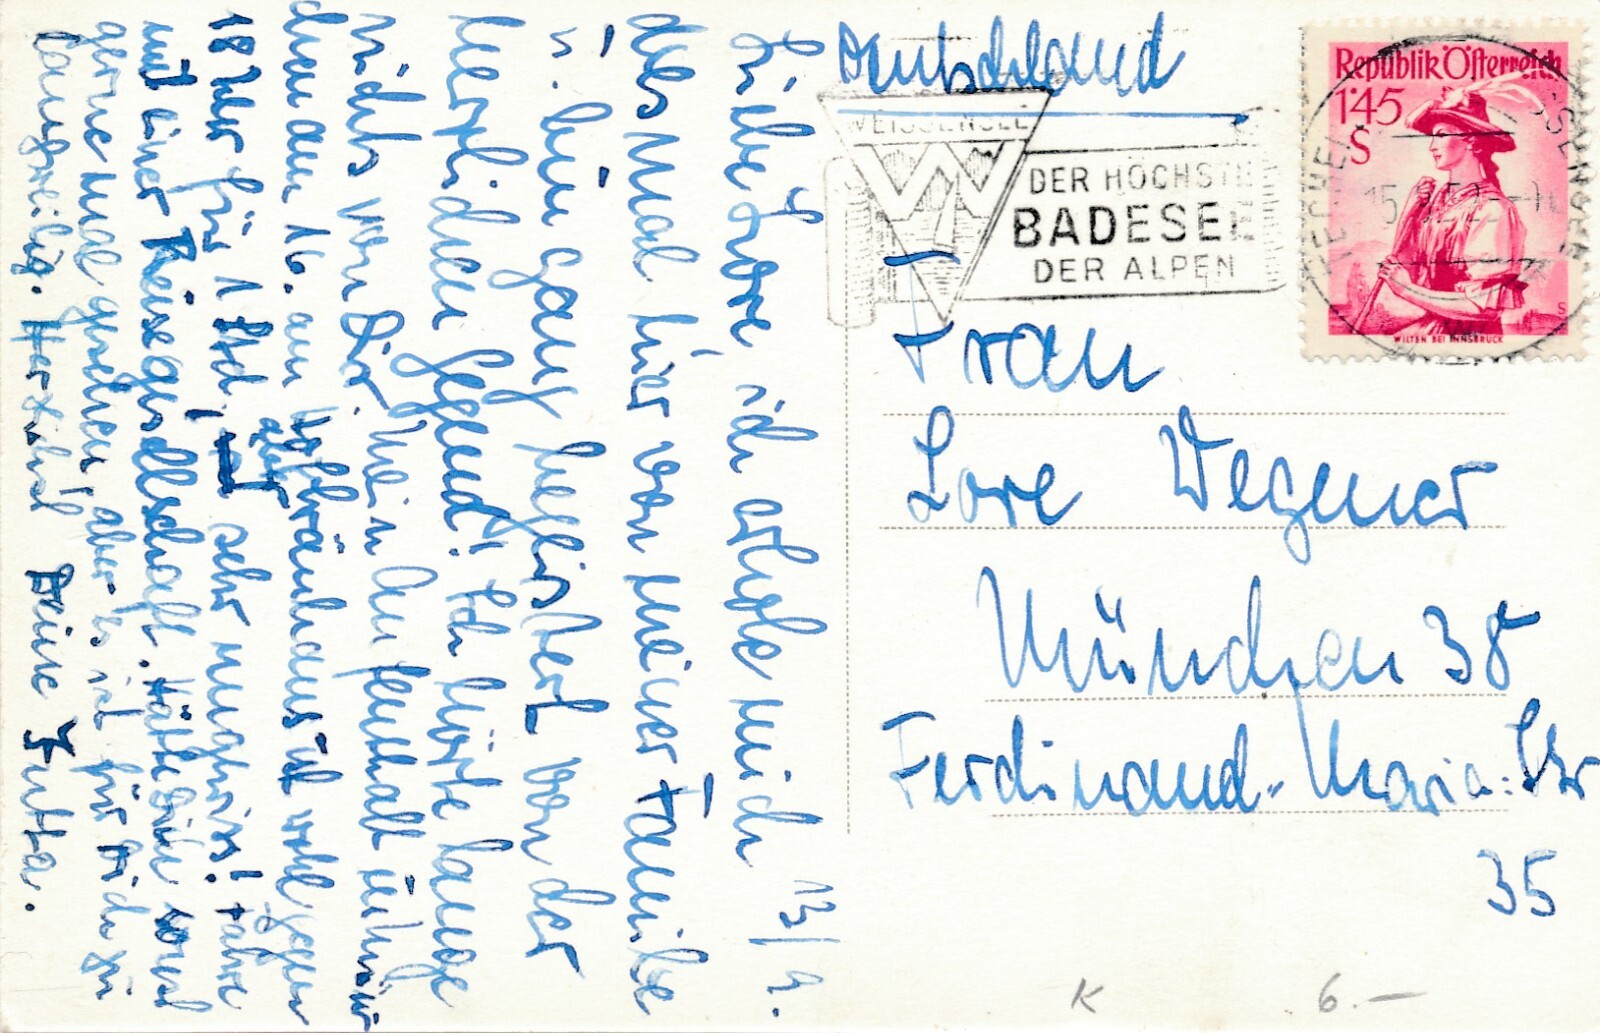 Deutschland
Republik Österreich
1·45
S
WILTEN BEI INNSBRUCK
WEISSENSEE
DER HÖCHSTE
BADESEE
DER ALPEN
15.9.52
Frau
Lore Wegener
München 38
Ferdinand-Maria-Str
35
13/9.
Liebe Lore, ich erhole mich
diesmal hier von meiner Familie
u. bin ganz begeistert von der
herrlichen Gegend! Ich hörte lange
nichts von Dir. Mein Aufenthalt in Mün
chen am 16. am Hofbräuhaus ist wohl gegen
18 Uhr für 1 Std., aber sehr ungewiss! Fahre
mit einer Reisegesellschaft. Hätte Dich sonst
gerne mal gesehen, aber es ist für Dich zu
langweilig. Herzlichst Deine Jutta.
K 6.—